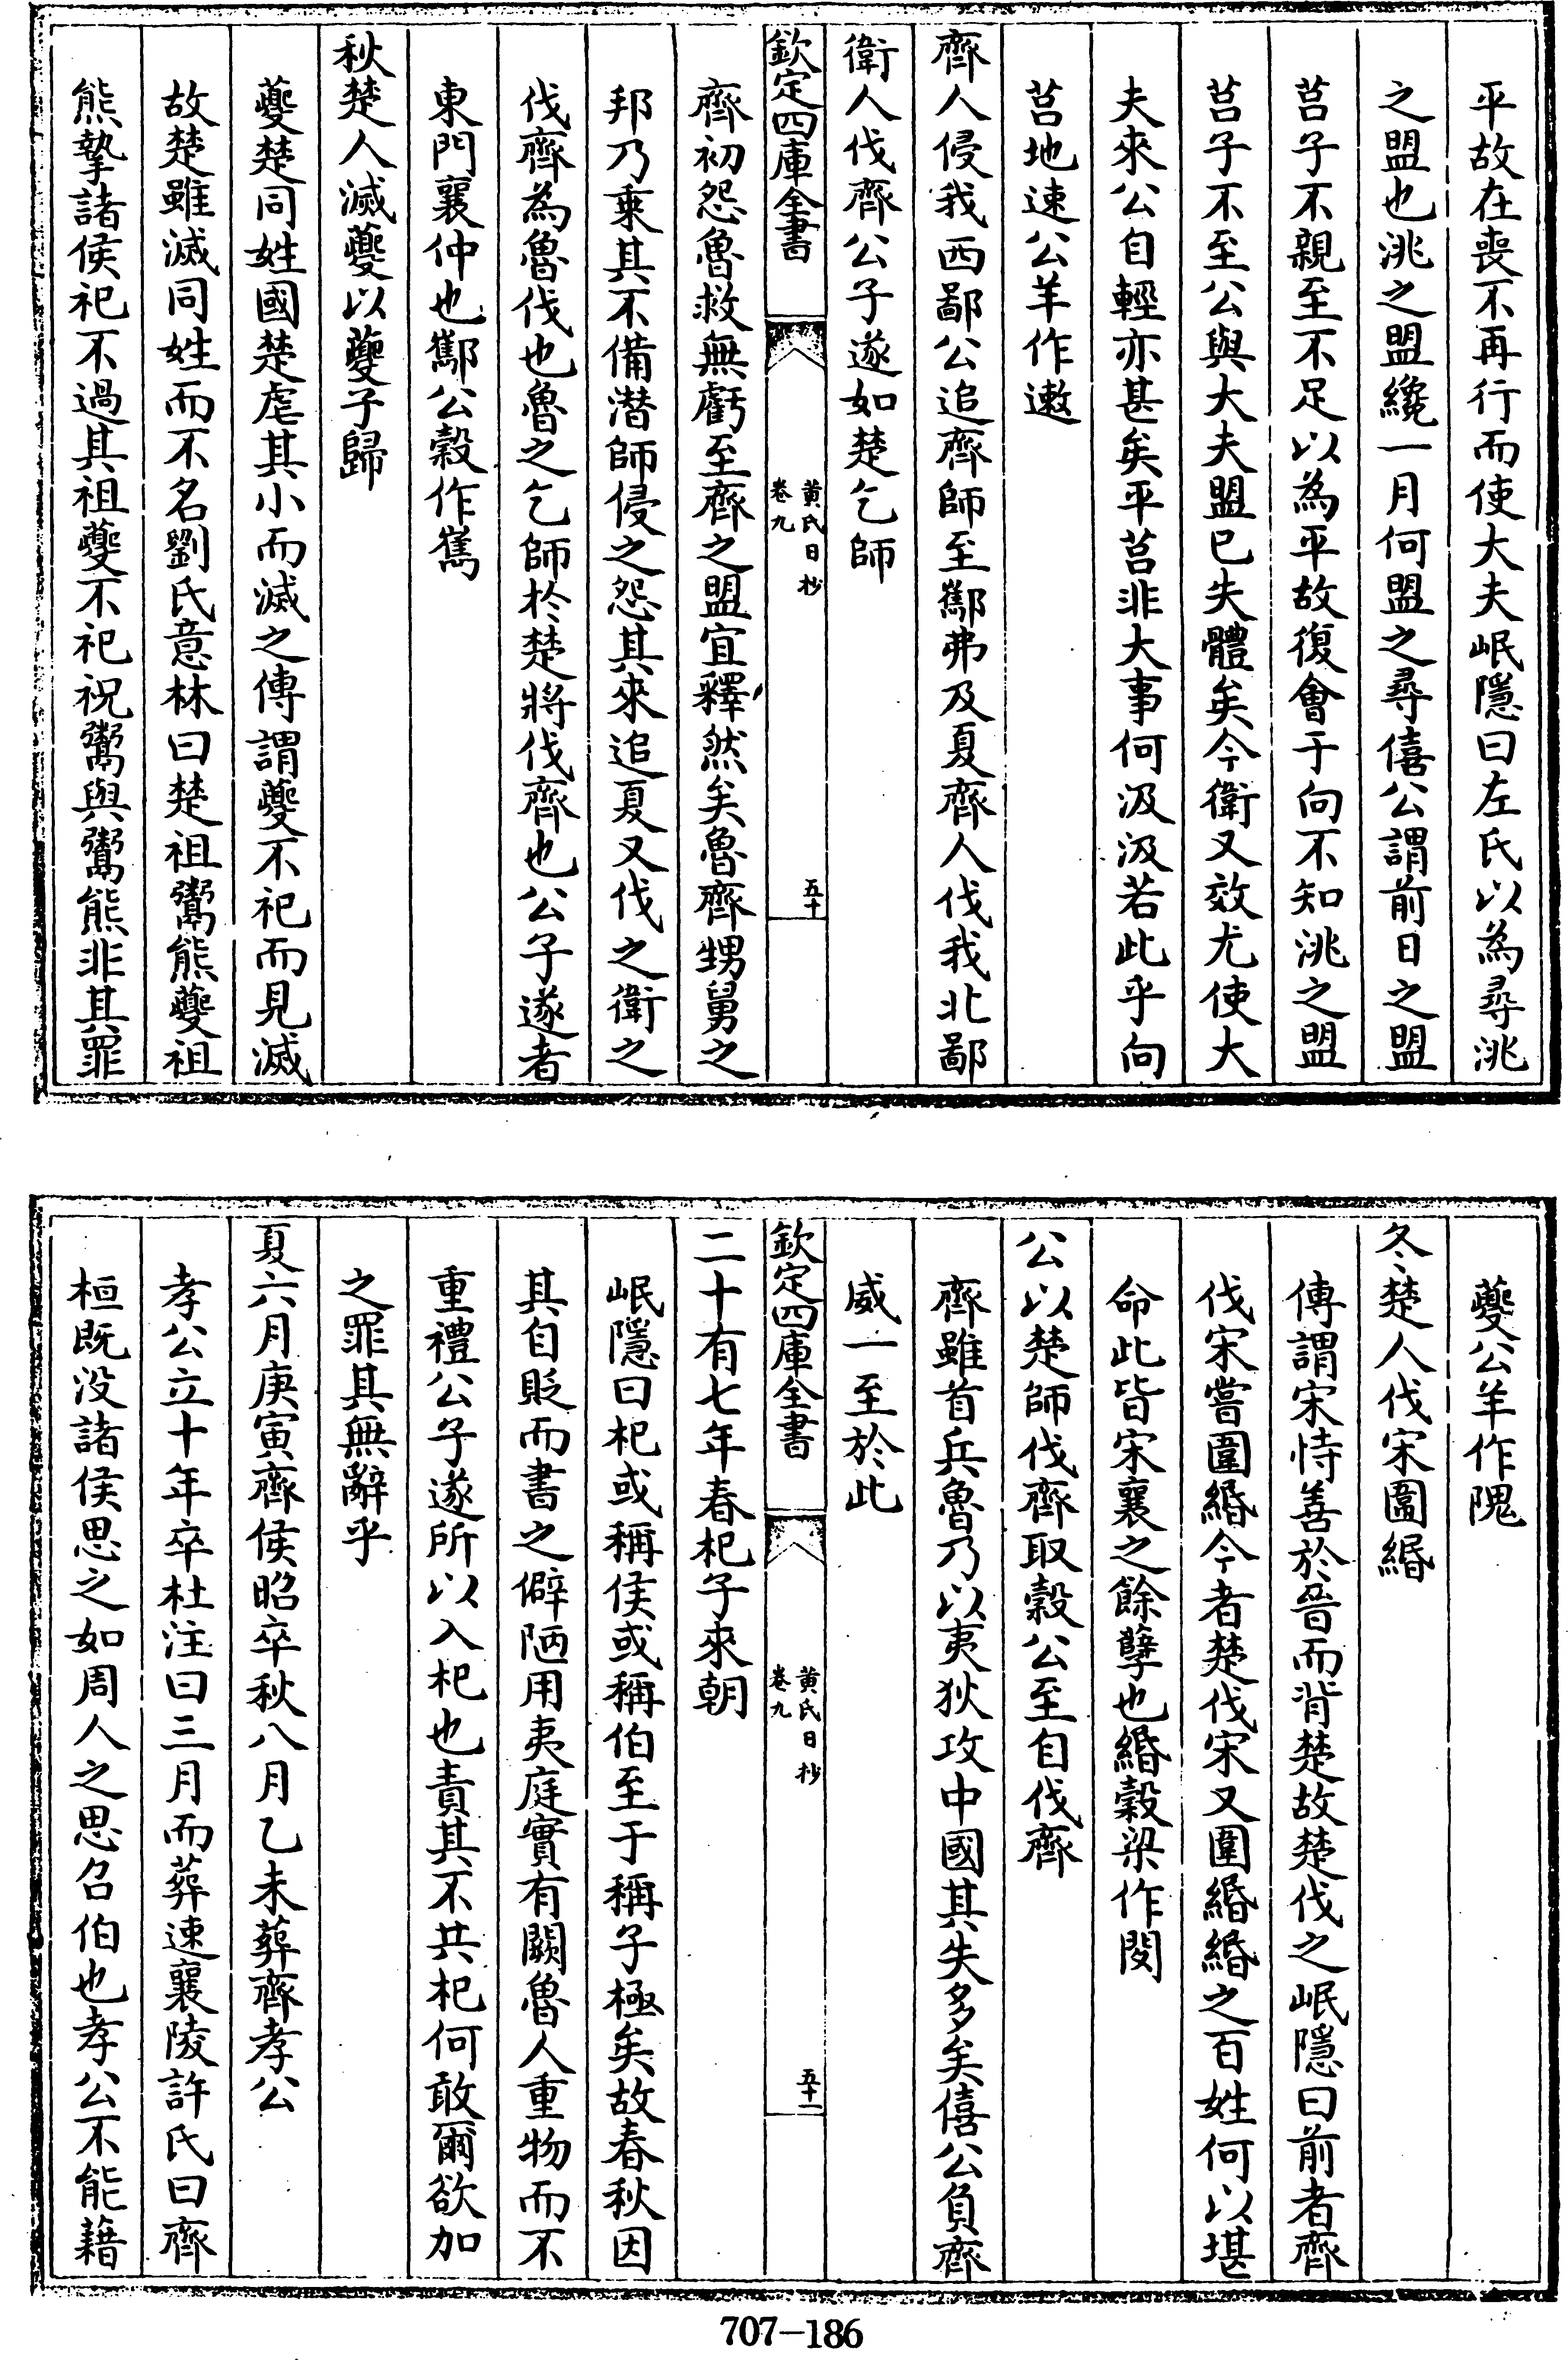 平故在喪不再行而使大夫岷隱曰左氏以為尋洮
之盟也洮之盟纔一月何盟之尋僖公謂前日之盟
莒子不親至不足以為平故復會于向不知洮之盟
莒子不至公與大夫盟已失體矣今衛又效尤使大
夫來公自輕亦甚矣平莒非大事何汲汲若此乎向
莒地速公羊作遬
齊人侵我西鄙公追齊師至酅弗及夏齊人伐我北鄙
衛人伐齊公子遂如楚乞師
欽定四庫全書
黄氏日抄
卷九
五十
齊初怨魯救無虧至齊之盟宜釋然矣魯齊甥舅之
邦乃乗其不備潜師侵之怨其來追夏又伐之衛之
伐齊為魯伐也魯之乞師於楚將伐齊也公子遂者
東門襄仲也酅公穀作巂
秋楚人滅夔以夔子歸
夔楚同姓國楚虐其小而滅之傳謂夔不祀而見滅
故楚雖滅同姓而不名劉氏意林曰楚祖鬻熊夔祖
熊摯諸侯祀不過其祖夔不祀祝鬻與鬻熊非其罪
夔公羊作隗
冬楚人伐宋圍緡
傳謂宋恃善於晉而背楚故楚伐之岷隱曰前者齊
伐宋嘗圍緡今者楚伐宋又圍緡緡之百姓何以堪
命此皆宋襄之餘孽也緡穀梁作閔
公以楚師伐齊取穀公至自伐齊
齊雖首兵魯乃以夷狄攻中國其失多矣僖公負齊
威一至於此
欽定四庫全書
黄氏日抄
卷九
五十一
二十有七年春杞子來朝
岷隱曰杞或稱侯或稱伯至于稱子極矣故春秋因
其自貶而書之僻陋用夷庭實有闕魯人重物而不
重禮公子遂所以入杞也責其不共杞何敢爾欲加
之罪其無辭乎
夏六月庚寅齊侯昭卒秋八月乙未葬齊孝公
孝公立十年卒杜注曰三月而葬速襄陵許氏曰齊
桓既没諸侯思之如周人之思召伯也孝公不能藉
707-186